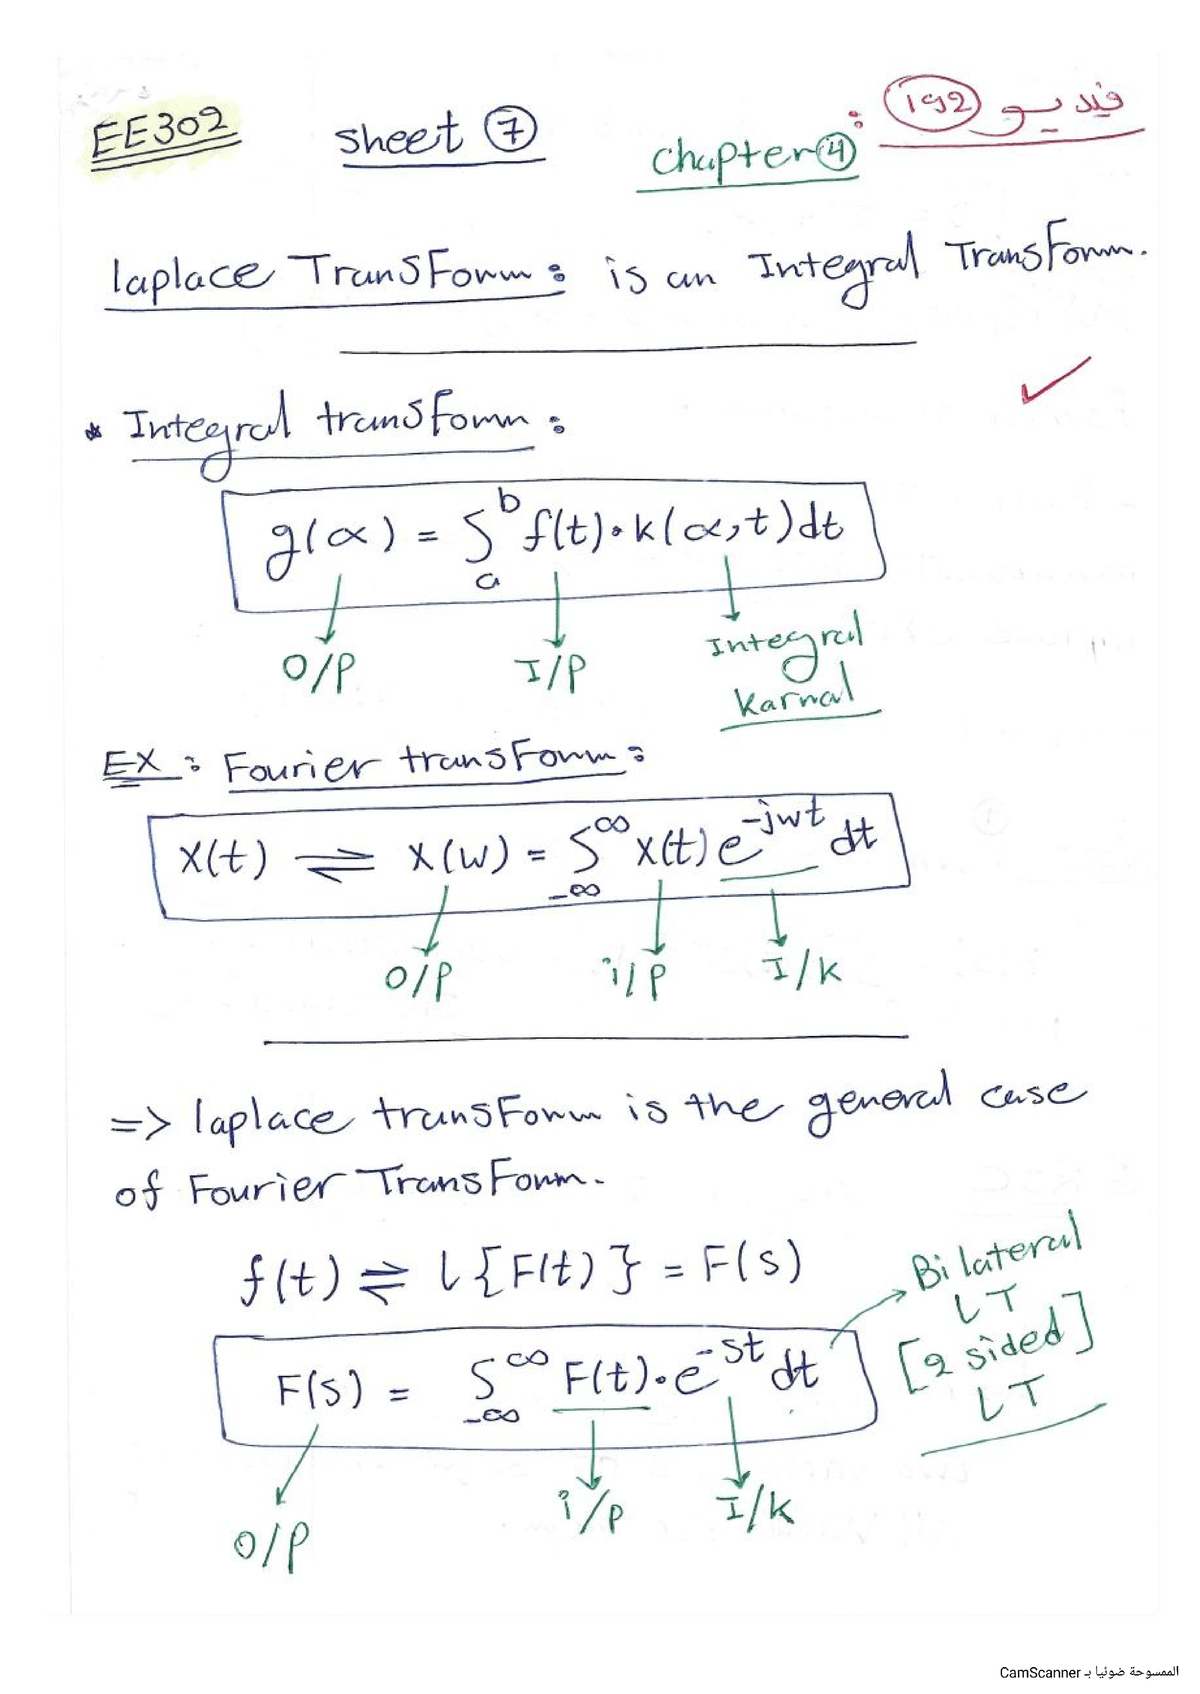 EE302 sheet 7 chapter 4 : فيديو 1و2
laplace TransForm : is an Integral TransForm.
* Integral transform :
g(α) = ∫_a^b f(t) · k(α,t) dt
O/P I/P Integral
Karnal
EX : Fourier transForm :
X(t) ⇌ X(w) = ∫_-∞^∞ X(t) e^-jwt dt
O/P i/P I/K
=> laplace transForm is the general case
of Fourier TransForm.
f(t) ⇌ L{F(t)} = F(s)
Bilateral
LT
[2 sided]
LT
F(s) = ∫_-∞^∞ F(t) · e^-st dt
O/P i/P I/K
الممسوحة ضوئيا بـ CamScanner